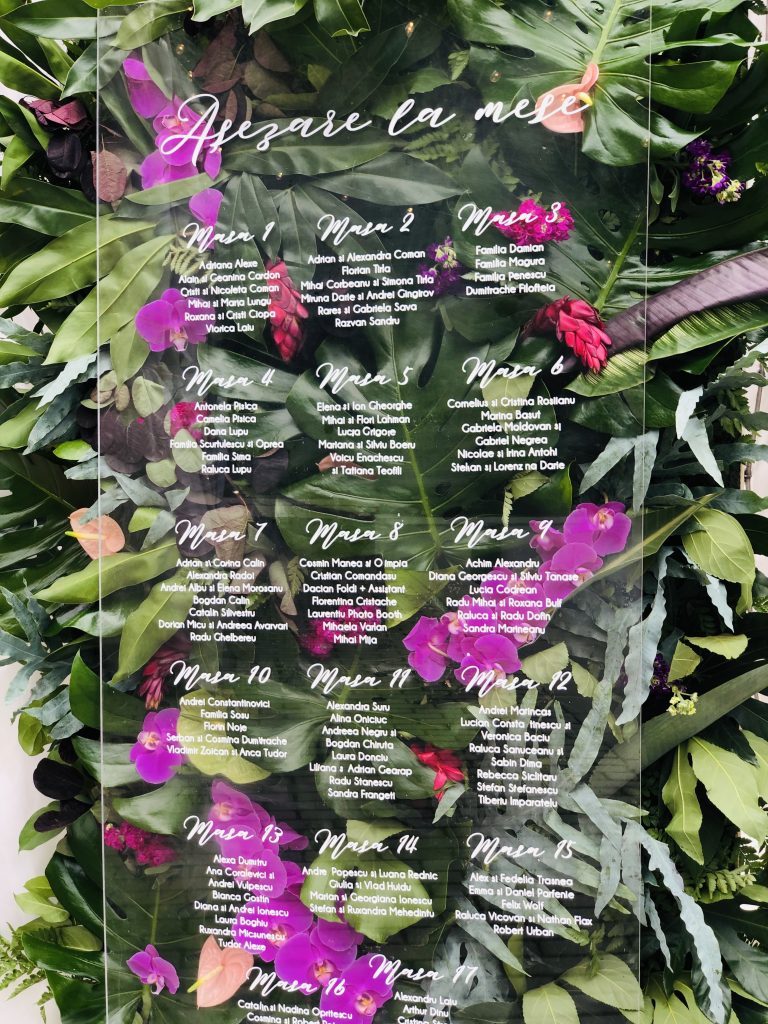 Așezare la mese
Masa 1
Adriana Alexe
Alain și Geanina Cardon
Cristi și Nicoleta Coman
Mihai și Maria Lungu
Roxana și Cristi Clopa
Viorica Laiu
Masa 2
Adrian și Alexandra Coman
Florian Tirla
Mihai Corbeanu și Simona Tirla
Miruna Darie și Andrei Gingirov
Rares și Gabriela Sava
Razvan Sandru
Masa 3
Familia Damian
Familia Magura
Familia Penescu
Dumitrache Filofteia
Masa 4
Antonela Pisica
Camelia Pisica
Dana Lupu
Familia Scurtulescu și Oprea
Familia Sima
Raluca Lupu
Masa 5
Elena și Ion Gheorghe
Mihai și Flori Lahman
Luca Grigore
Mariana și Silviu Boeru
Voicu Enachescu
și Tatiana Teofili
Masa 6
Cornelius și Cristina Rosianu
Marina Basut
Gabriela Moldovan și
Gabriel Negrea
Nicolae și Irina Antohi
Stefan și Lorenz na Darie
Masa 7
Adrian și Corina Calin
Alexandra Radoi
Andrei Albu și Elena Morosanu
Bogdan Calin
Catalin Silvestru
Dorian Micu și Andreea Avarvari
Radu Ghelbereu
Masa 8
Cosmin Manea și O impia
Cristian Comandasu
Dacian Foldi + Assistant
Florentina Cristache
Laurentiu Photo Booth
Mihaela Varlan
Mihai Mija
Masa 9
Achim Alexandru
Diana Georgescu și Silviu Tanase
Lucia Codrean
Radu Mihai și Roxana Buli
Raluca și Radu Dofin
Sandra Marineanu
Masa 10
Andrei Constantinovici
Familia Sosu
Florin Noje
Serban și Cosmina Dumitrache
Vladimir Zoican și Anca Tudor
Masa 11
Alexandra Suru
Alina Oniciuc
Andreea Negru și
Bogdan Chiruta
Laura Donciu
Liliana și Adrian Gearap
Radu Stanescu
Sandra Frangeti
Masa 12
Andrei Marincas
Lucian Consta tinescu și
Veronica Baciu
Raluca Sanuceanu și
Sabin Dima
Rebecca Sicitaru
Stefan Stefanescu
Tiberiu Imparatelu
Masa 13
Alexa Dumitru
Ana Coralevici și
Andrei Vulpescu
Bianca Gostin
Diana și Andrei Ionescu
Laura Boghiu
Ruxandra Micsunescu
Tudor Alexe
Masa 14
Andre Popescu și Luana Rednic
Giulia și Vlad Huidu
Marian și Georgiana Ionescu
Stefan și Ruxandra Mehedintu
Masa 15
Alex și Fedelia Trasnea
Emma și Daniel Parfente
Felix Wolf
Raluca Vicovan și Nathan Flax
Robert Urban
Masa 16
Catalin și Nadina Opritescu
Cosmina și Robert
Masa 17
Alexandru Laiu
Arthur Dinu